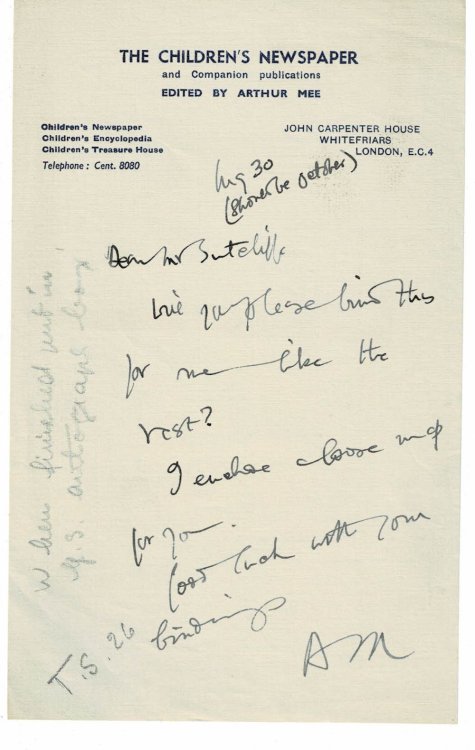 THE CHILDREN'S NEWSPAPER
and Companion publications
EDITED BY ARTHUR MEE
Children's Newspaper
Children's Encyclopedia
Children's Treasure House
Telephone : Cent. 8080
JOHN CARPENTER HOUSE
WHITEFRIARS
LONDON, E.C.4
Aug 30
(should be October)
Dear Mr Sutcliffe
Will you please bind this
for me like the
rest?
I enclose a loose
for you.
Good luck with your
bindings
AM
When finished put in
autograph box
T.S. 26